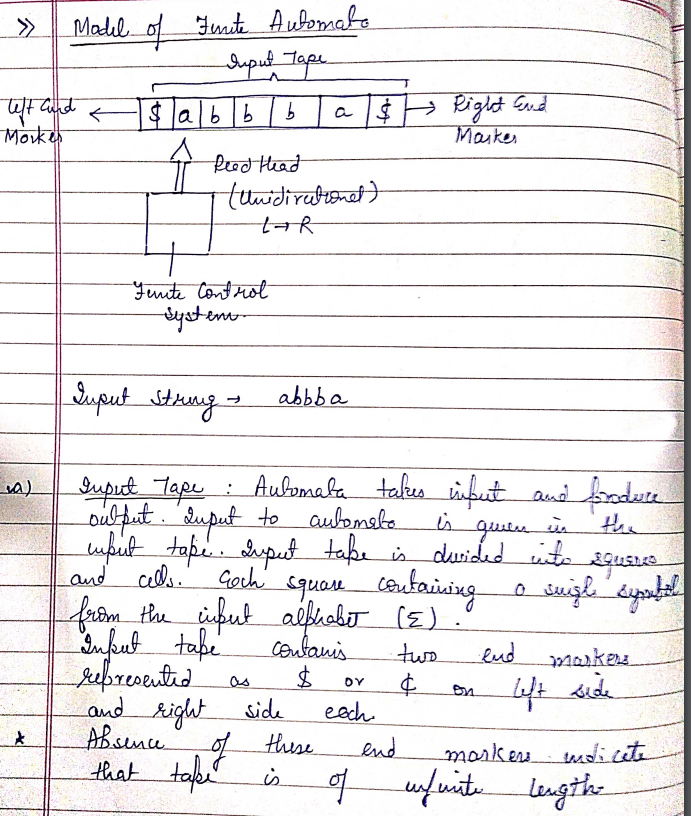 >> Model of Finite Automata
Input Tape
Left End Marker ← $ a b b b a $ → Right End Marker
Read Head
(Unidirectional)
L → R
Finite Control
System.
Input string → abbba
a) Input Tape : Automata takes input and produce
output. Input to automata is given in the
input tape. Input tape is divided into squares
and cells. Each square containing a single symbol
from the input alphabet (Σ).
Input tape contains two end markers
represented as $ or ¢ on left side
and right side each.
* Absence of these end markers indicate
that tape is of infinite length